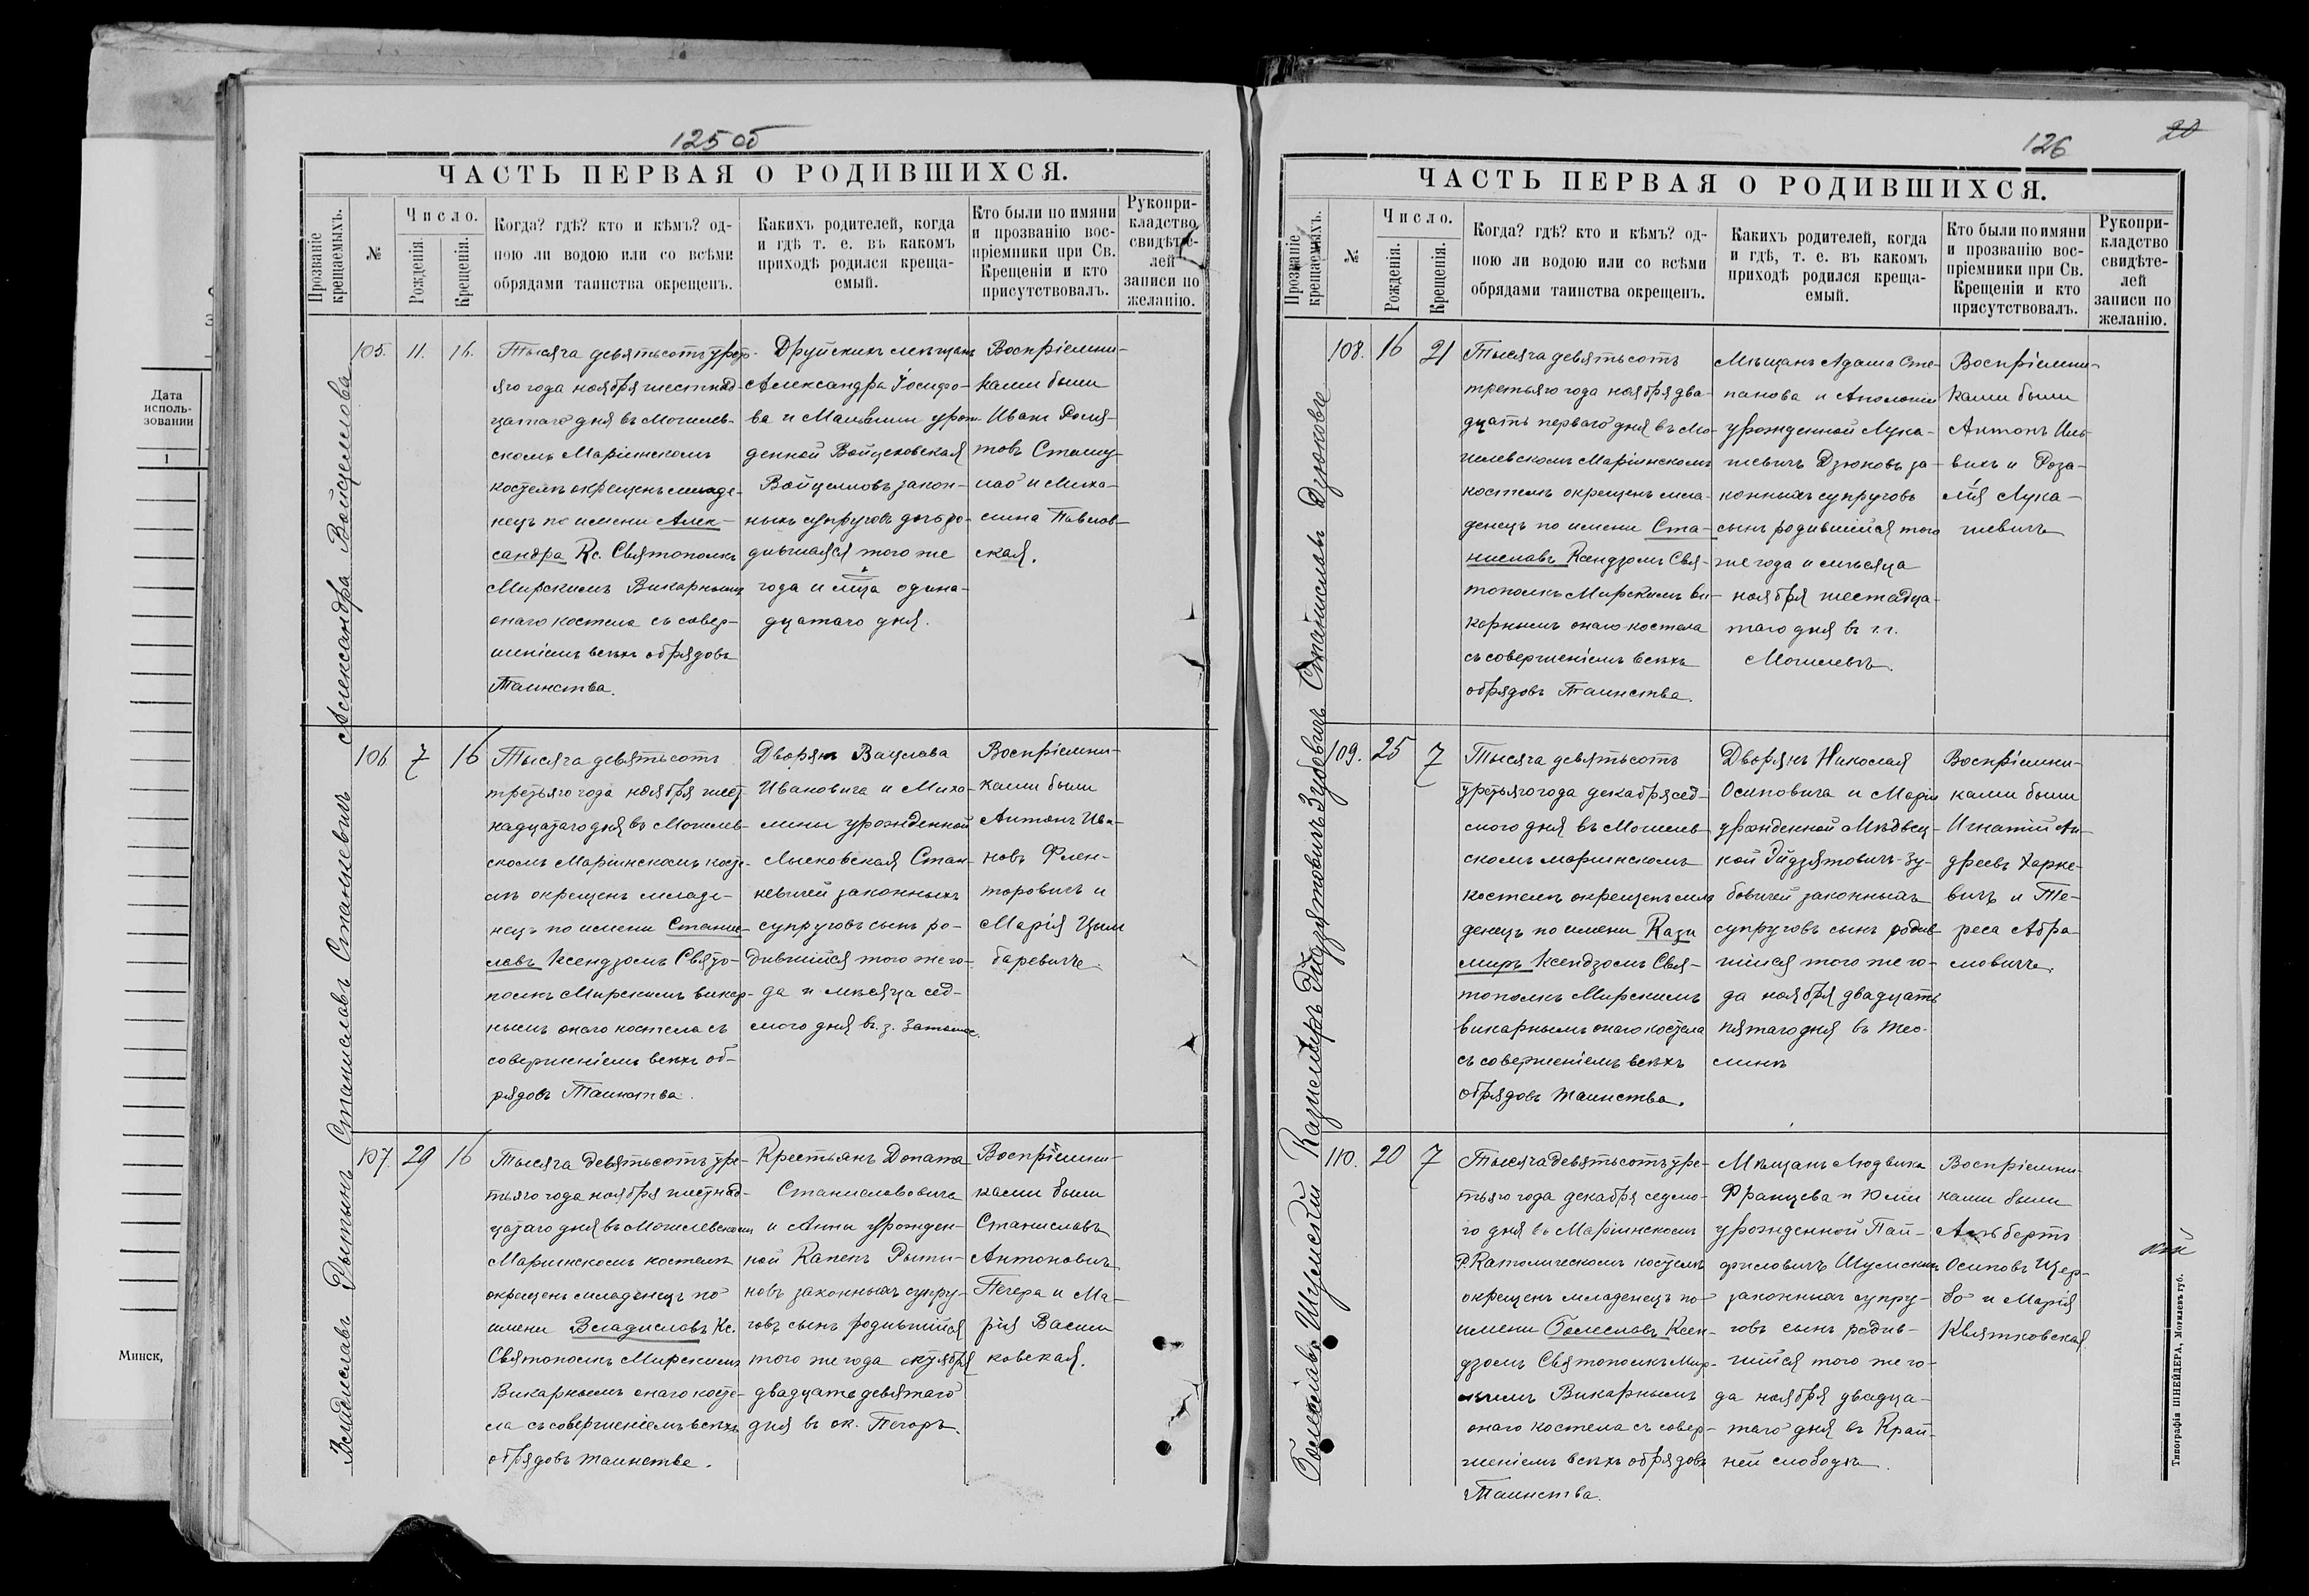 125 об
ЧАСТЬ ПЕРВАЯ О РОДИВШИХСЯ.
Прозваніе крещаемыхъ.
№
Число.
Рожденія.
Крещенія.
Когда? гдѣ? кто и кѣмъ? од-
ною ли водою или со всѣми
обрядами таинства окрещенъ.
Какихъ родителей, когда
и гдѣ т. е. въ какомъ
приходѣ родился креща-
емый.
Кто были по имяни
и прозванію вос-
пріемники при Св.
Крещеніи и кто
присутствовалъ.
Рукопри-
кладство
свидѣте-
лей
записи по
желанію.
Александра Войцеллова
105.
11.
16.
Тысяча девятьсотъ треть-
яго года ноября шестнад-
цатаго дня въ Могилев-
скомъ Маріинскомъ
костелѣ окрещенъ младе-
нецъ по имени Алек-
сандра Кс. Святополкъ
Мирскимъ Викарнымъ
онаго костела съ совер-
шеніемъ всѣхъ обрядовъ
Таинства.
Друйскихъ мѣщанъ
Александра Іосифо-
ва и Мальвины урож-
денной Войцеховская
Войцелловъ закон-
ныхъ супруговъ дочь ро-
дившаяся того же
года и мца одина-
дцатаго дня.
Воспріемни-
ками были
Иванъ
товъ
и Миха-
лина Павлов-
ская.
Станиславъ Станкевичъ
106
7
16
Тысяча девятьсотъ
третьяго года ноября шест-
надцатаго дня въ Могилев-
скомъ Маріинскомъ косте-
лѣ окрещенъ младе-
нецъ по имени Станис-
лавъ Ксендзомъ Свято-
полкъ Мирскимъ викар-
нымъ онаго костела съ
совершеніемъ всѣхъ об-
рядовъ Таинства.
Дворянъ Вацлава
Ивановича и Миха-
лины урожденной
Лысковская Стан-
кевичей законныхъ
супруговъ сынъ ро-
дившійся того же го-
да и мѣсяца сед-
мого дня въ з.
Воспріемни-
ками были
Антонъ Ива-
новъ Флен-
торовичъ и
Марія Цым
баревиче.
Владиславъ Рытынъ
107.
29
16
Тысяча девятьсотъ тре-
тьяго года ноября шестнад-
цатаго дня въ Могилевскомъ
Маріинскомъ костелѣ
окрещенъ младенецъ по
имени Владиславъ Кс.
Святополкъ Мирскимъ
Викарнымъ онаго косте-
ла съ совершеніемъ всѣхъ
обрядовъ таинства.
Крестьянъ Доната
Станиславовича
и Анны урожден-
ной Капень Рыти-
новъ законныхъ супру-
говъ сынъ родившійся
того же года октября
двадцать девятаго
дня въ ок. Печоръ.
Воспріемни-
ками были
Станиславъ
Антоновичъ
Печера и Ма-
рія Васил
ковская.
126
20
ЧАСТЬ ПЕРВАЯ О РОДИВШИХСЯ.
Прозваніе крещаемыхъ.
№
Число.
Рожденія.
Крещенія.
Когда? гдѣ? кто и кѣмъ? од-
ною ли водою или со всѣми
обрядами таинства окрещенъ.
Какихъ родителей, когда
и гдѣ, т. е. въ какомъ
приходѣ родился креща-
емый.
Кто были по имяни
и прозванію вос-
пріемники при Св.
Крещеніи и кто
присутствовалъ.
Рукопри-
кладство
свидѣте-
лей
записи по
желанію.
Станиславъ Дзюковъ
108.
16
21
Тысяча девятьсотъ
третьяго года ноября два-
дцать перваго дня въ Мо-
гилевскомъ Маріинскомъ
костелѣ окрещенъ мла-
денецъ по имени Ста-
ниславъ Ксендзомъ Свя-
тополкъ Мирскимъ ви-
карнымъ онаго костела
съ совершеніемъ всѣхъ
обрядовъ Таинства.
Мѣщанъ Адама Сте-
панова и Аполоніи
урожденной Лука-
шевичъ Дзюковъ за-
конныхъ супруговъ
сынъ родившійся того
же года и мѣсяца
ноября шестадца-
таго дня въ г.г.
Могилевѣ.
Воспріемни-
ками были
Антонъ Иль-
вихъ и Роза-
лія Лука-
шевичъ
Казимиръ Эйдзятовичъ Зубовичъ
109.
25
7
Тысяча девятьсотъ
третьяго года декабря сед-
мого дня въ Могилев-
скомъ маріинскомъ
костелѣ окрещенъ мла
денецъ по имени Кази
миръ Ксендзомъ Свя-
тополкъ Мирскимъ
викарнымъ онаго костела
съ совершеніемъ всѣхъ
обрядовъ таинства.
Дворянъ Николая
Осиповича и Маріи
урожденной Мѣдвец-
кой Эйдзятовичъ-Зу-
бовичей законныхъ
супруговъ сынъ родив
шійся того же го-
да ноября двадцать
пятаго дня въ
Воспріемни-
ками были
Игнатій Ан-
дреевъ Харке-
вичъ и Те-
реса Абра
мовиче.
Болеславъ Шумскій
110.
20
7
Тысяча девятьсотъ тре-
тьяго года декабря седмо-
го дня въ Маріинскомъ
Р. Католическомъ костелѣ
окрещенъ младенецъ по
имени Болеславъ Ксен-
дзомъ Святополкъ Мир-
скимъ Викарнымъ
онаго костела съ совер-
шеніемъ всѣхъ обрядовъ
Таинства.
Мѣщанъ Людвика
Францева и Юліи
урожденной Пай-
фисловичъ Шумскихъ
законныхъ супру-
говъ сынъ родив-
шійся того же го-
да ноября двадца-
таго дня въ Край-
ней слободѣ.
Воспріемни-
ками были
Альбертъ
Осиповъ Щер-
бо и Марія
Квятковская
Типографія ШНЕЙДЕРА, Могилевъ губ.
Дата
исполь-
зовании
1
Минск,